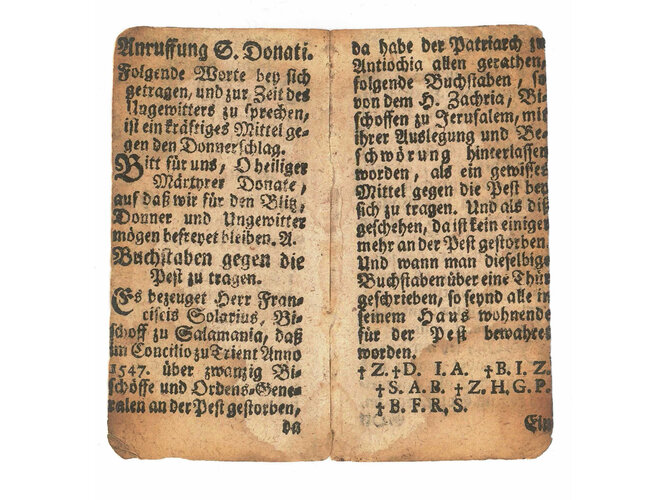 Anruffung S. Donati.
Folgende Worte bey sich
getragen, und zur Zeit des
Ungewitters zu sprechen,
ist ein kräftiges Mittel ge-
gen den Donnerschlag.
Bitt für uns, O heiliger
Märtyrer Donate,
auf daß wir für den Blitz,
Donner und Ungewitter
mögen befreyet bleiben. A.
Buchstaben gegen die
Pest zu tragen.
Es bezeuget Herr Fran-
ciscis Solarius, Bi-
schoff zu Salamania, daß
im Concilio zu Trient Anno
1547. über zwanzig Bi-
schöffe und Ordens-Gene-
ralen an der Pest gestorben,
da
da habe der Patriarch zu
Antiochia allen gerathen,
folgende Buchstaben, so
von dem H. Zachria, Bi-
schoffen zu Jerusalem, mit
ihrer Auslegung und Be-
schwörung hinterlassen
worden, als ein gewisses
Mittel gegen die Pest bey
sich zu tragen. Und als diß
geschehen, da ist kein einiger
mehr an der Pest gestorben.
Und wann man dieselbige
Buchstaben über eine Thür
geschrieben, so seynd alle in
seinem Haus wohnende
für der Pest bewahret
worden.
† Z. † D. I A. † B. I. Z.
† S. A B. † Z. H. G. P.
† B. F. R, S.